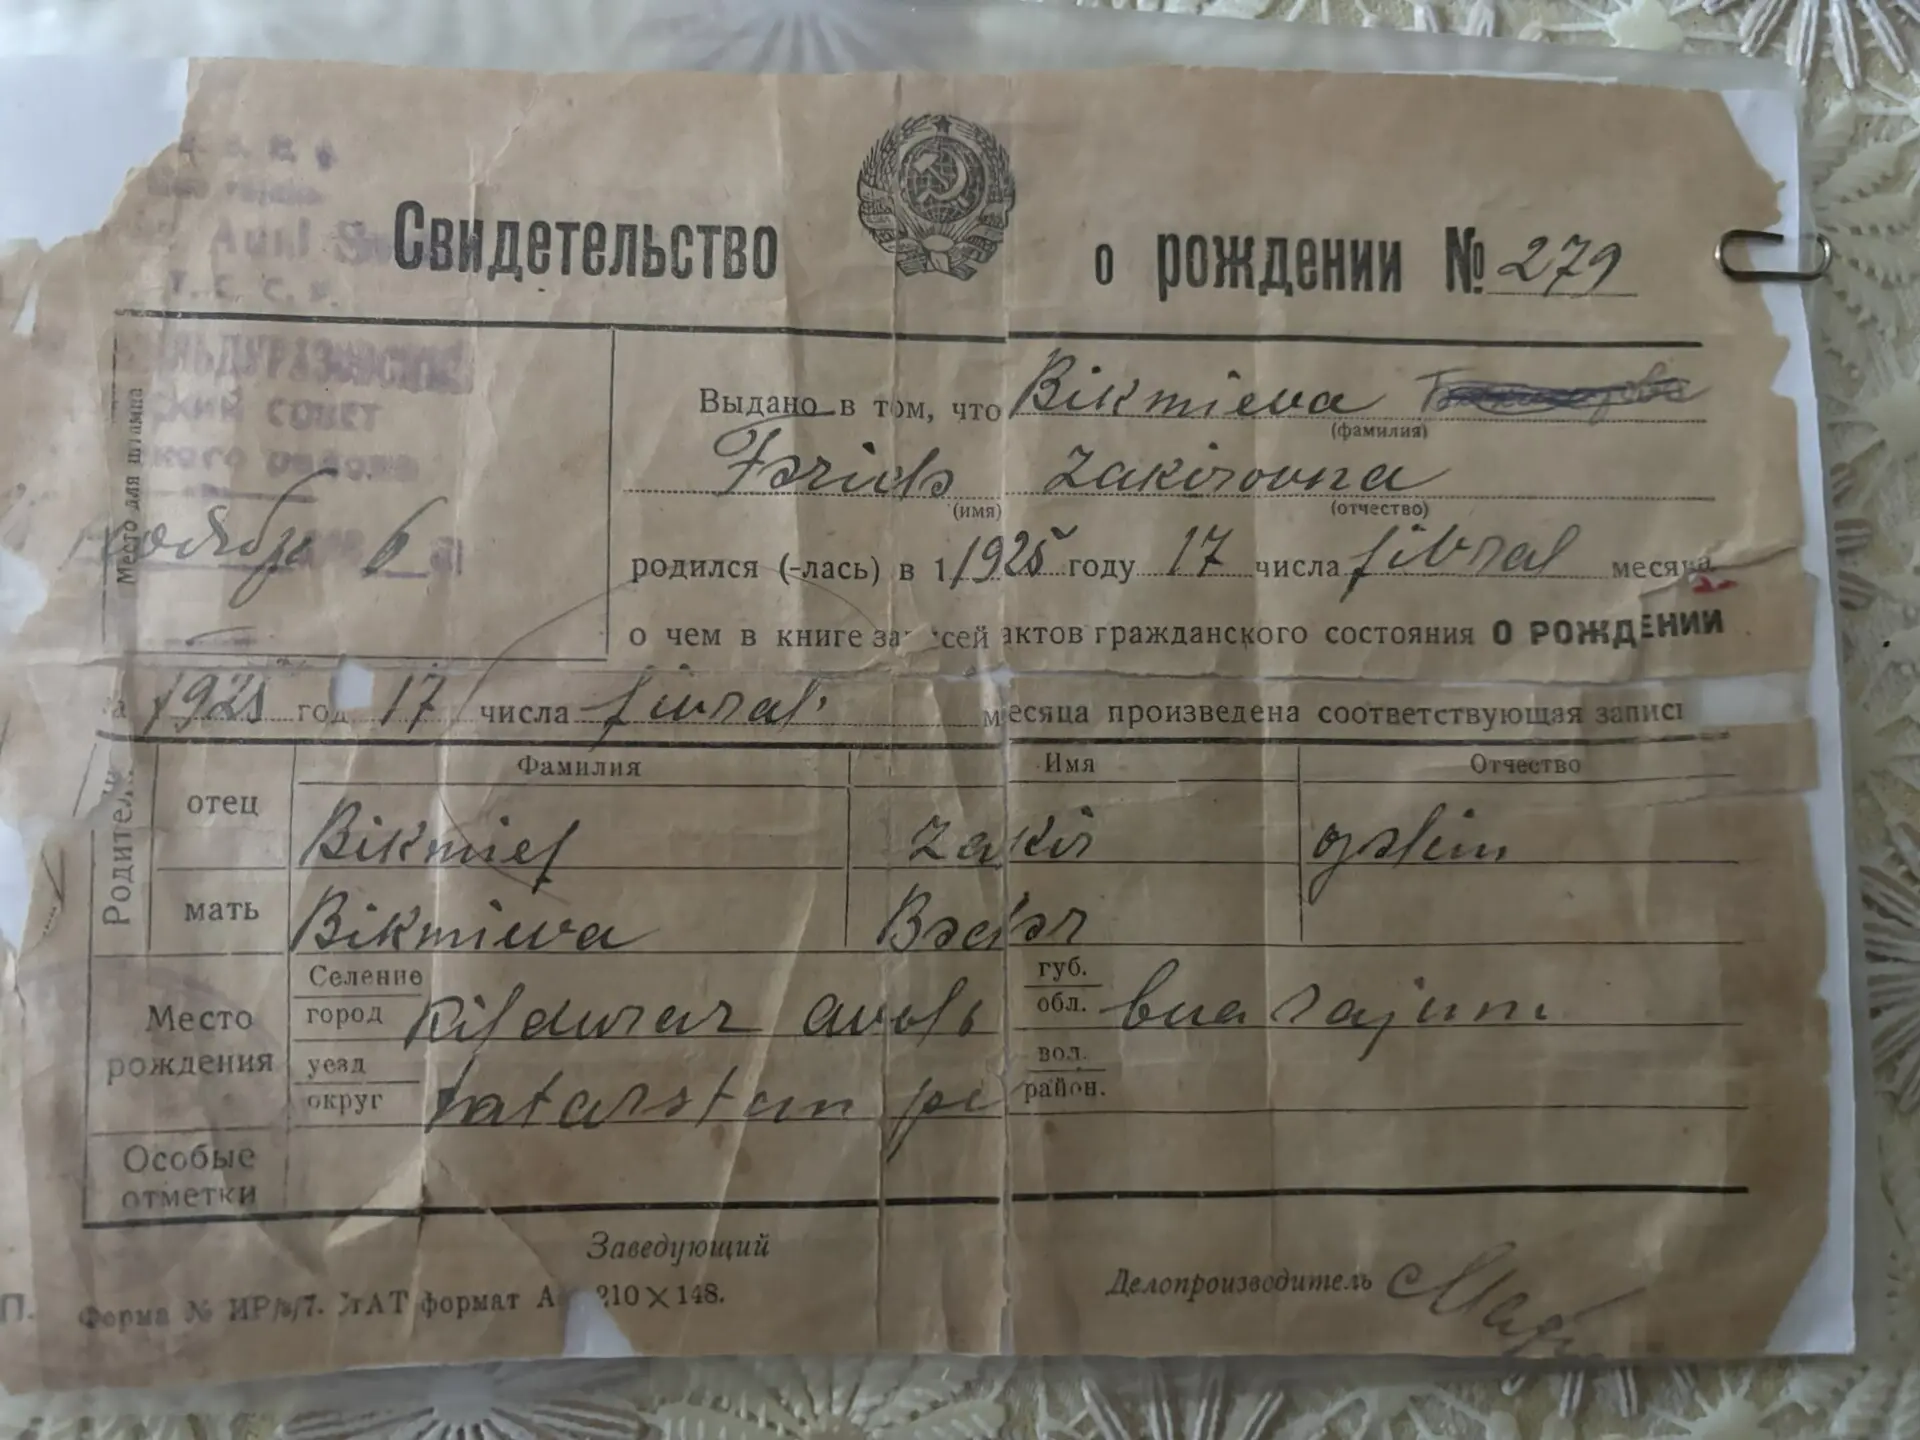 Aunl
Т. С. С. Р.
Свидетельство о рождении № 279
ЛЬДУРАЗОВСКИЙ
СКИЙ СОВЕТ
кого района
Место для штампа
Ноября 6
Выдано в том, что Bikmieva
(фамилия)
Fəridə Zakirovna
(имя) (отчество)
родился (-лась) в 1 1925 году 17 числа fibral месяца
о чем в книге за сей актов гражданского состояния О РОЖДЕНИИ
за 1925 год 17 числа fivral месяца произведена соответствующая запись
Фамилия Имя Отчество
Родители
отец Bikmief Zakir
мать Bikmieva Bədər
Место рождения
Селение
город Kilduraz avolь
губ.
обл. bua rajunь
уезд
округ tatarstan
вол.
район.
Особые отметки
Заведующий
Делопроизводитель
П. Форма № ИР/в/7. СтАТ формат А 210×148.